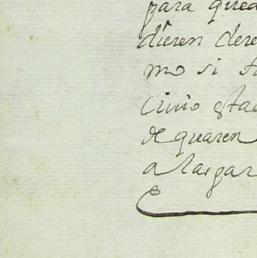 para qued
dieren dere
mo si fu
Civio esta
de quaren
alargar